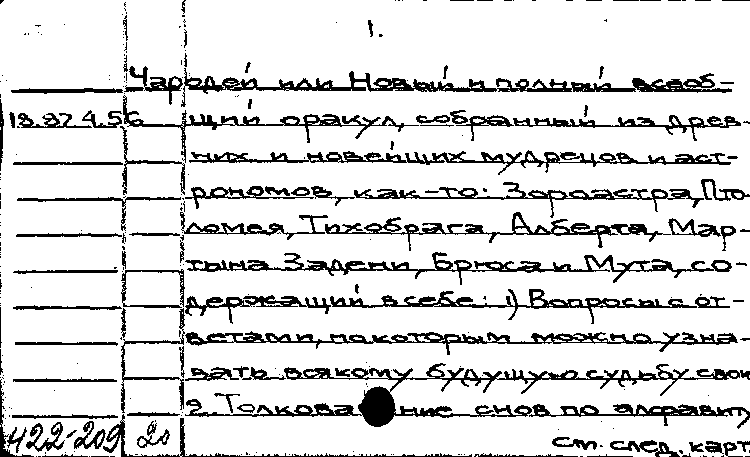 1.
Чародей или Новый и полный всеоб-
18.87.4.56 щий оракул, собранный из древ-
них и новейщих мудрецов и аст-
рономов, как-то: Зороастра, Пто-
ломея, Тихобрага, Алберта, Мар-
тына Задени, Брюса и Мута, со-
держащий в себе: 1) Вопросы с от-
ветами, по которым можно узна-
вать всякому будущую судьбу свою
2. Толкование снов по алфавиту
422-209 20 см. след. карт